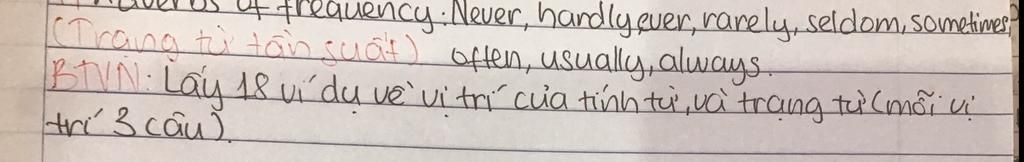 adverbs of frequency: Never, hardly ever, rarely, seldom, sometimes,
(Trạng từ tần suất) often, usually, always.
BTVN: Lấy 18 ví dụ về vị trí của tính từ, và trạng từ (mỗi vị
trí 3 câu).